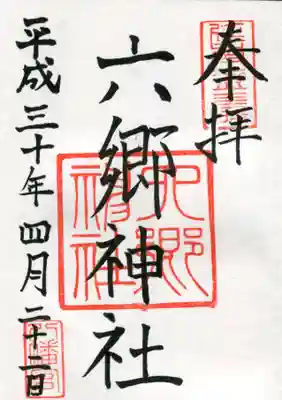 奉拝
六郷神社
平成三十年四月二十二日
六郷
神社
八幡宮